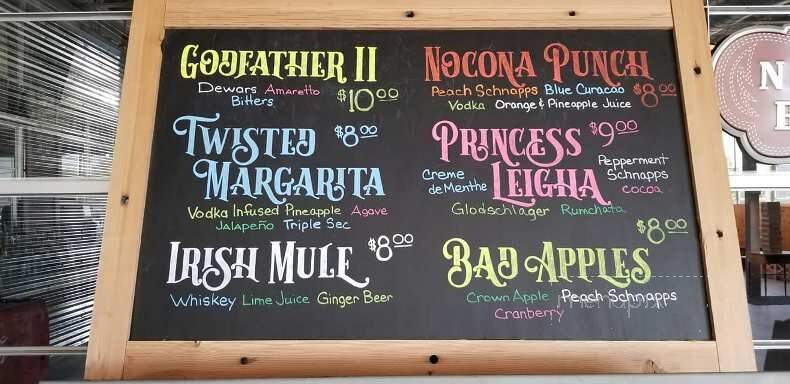 GODFATHER II
Dewars Amaretto
Bitters
$10.00
TWISTED
$8.00
MARGARITA
Vodka Infused Pineapple Agave
Jalapeño Triple Sec
IRISH MULE
$8.00
Whiskey Lime Juice Ginger Beer
NOCONA PUNCH
Peach Schnapps Blue Curacao
$8.00
Vodka Orange & Pineapple Juice
PRINCESS
$9.00
LEIGHA
Creme
de Menthe
Pepperment
Schnapps
cocoa
Glodschlager Rumchata
$8.00
BAD APPLES
Crown Apple Peach Schnapps
Cranberry
N